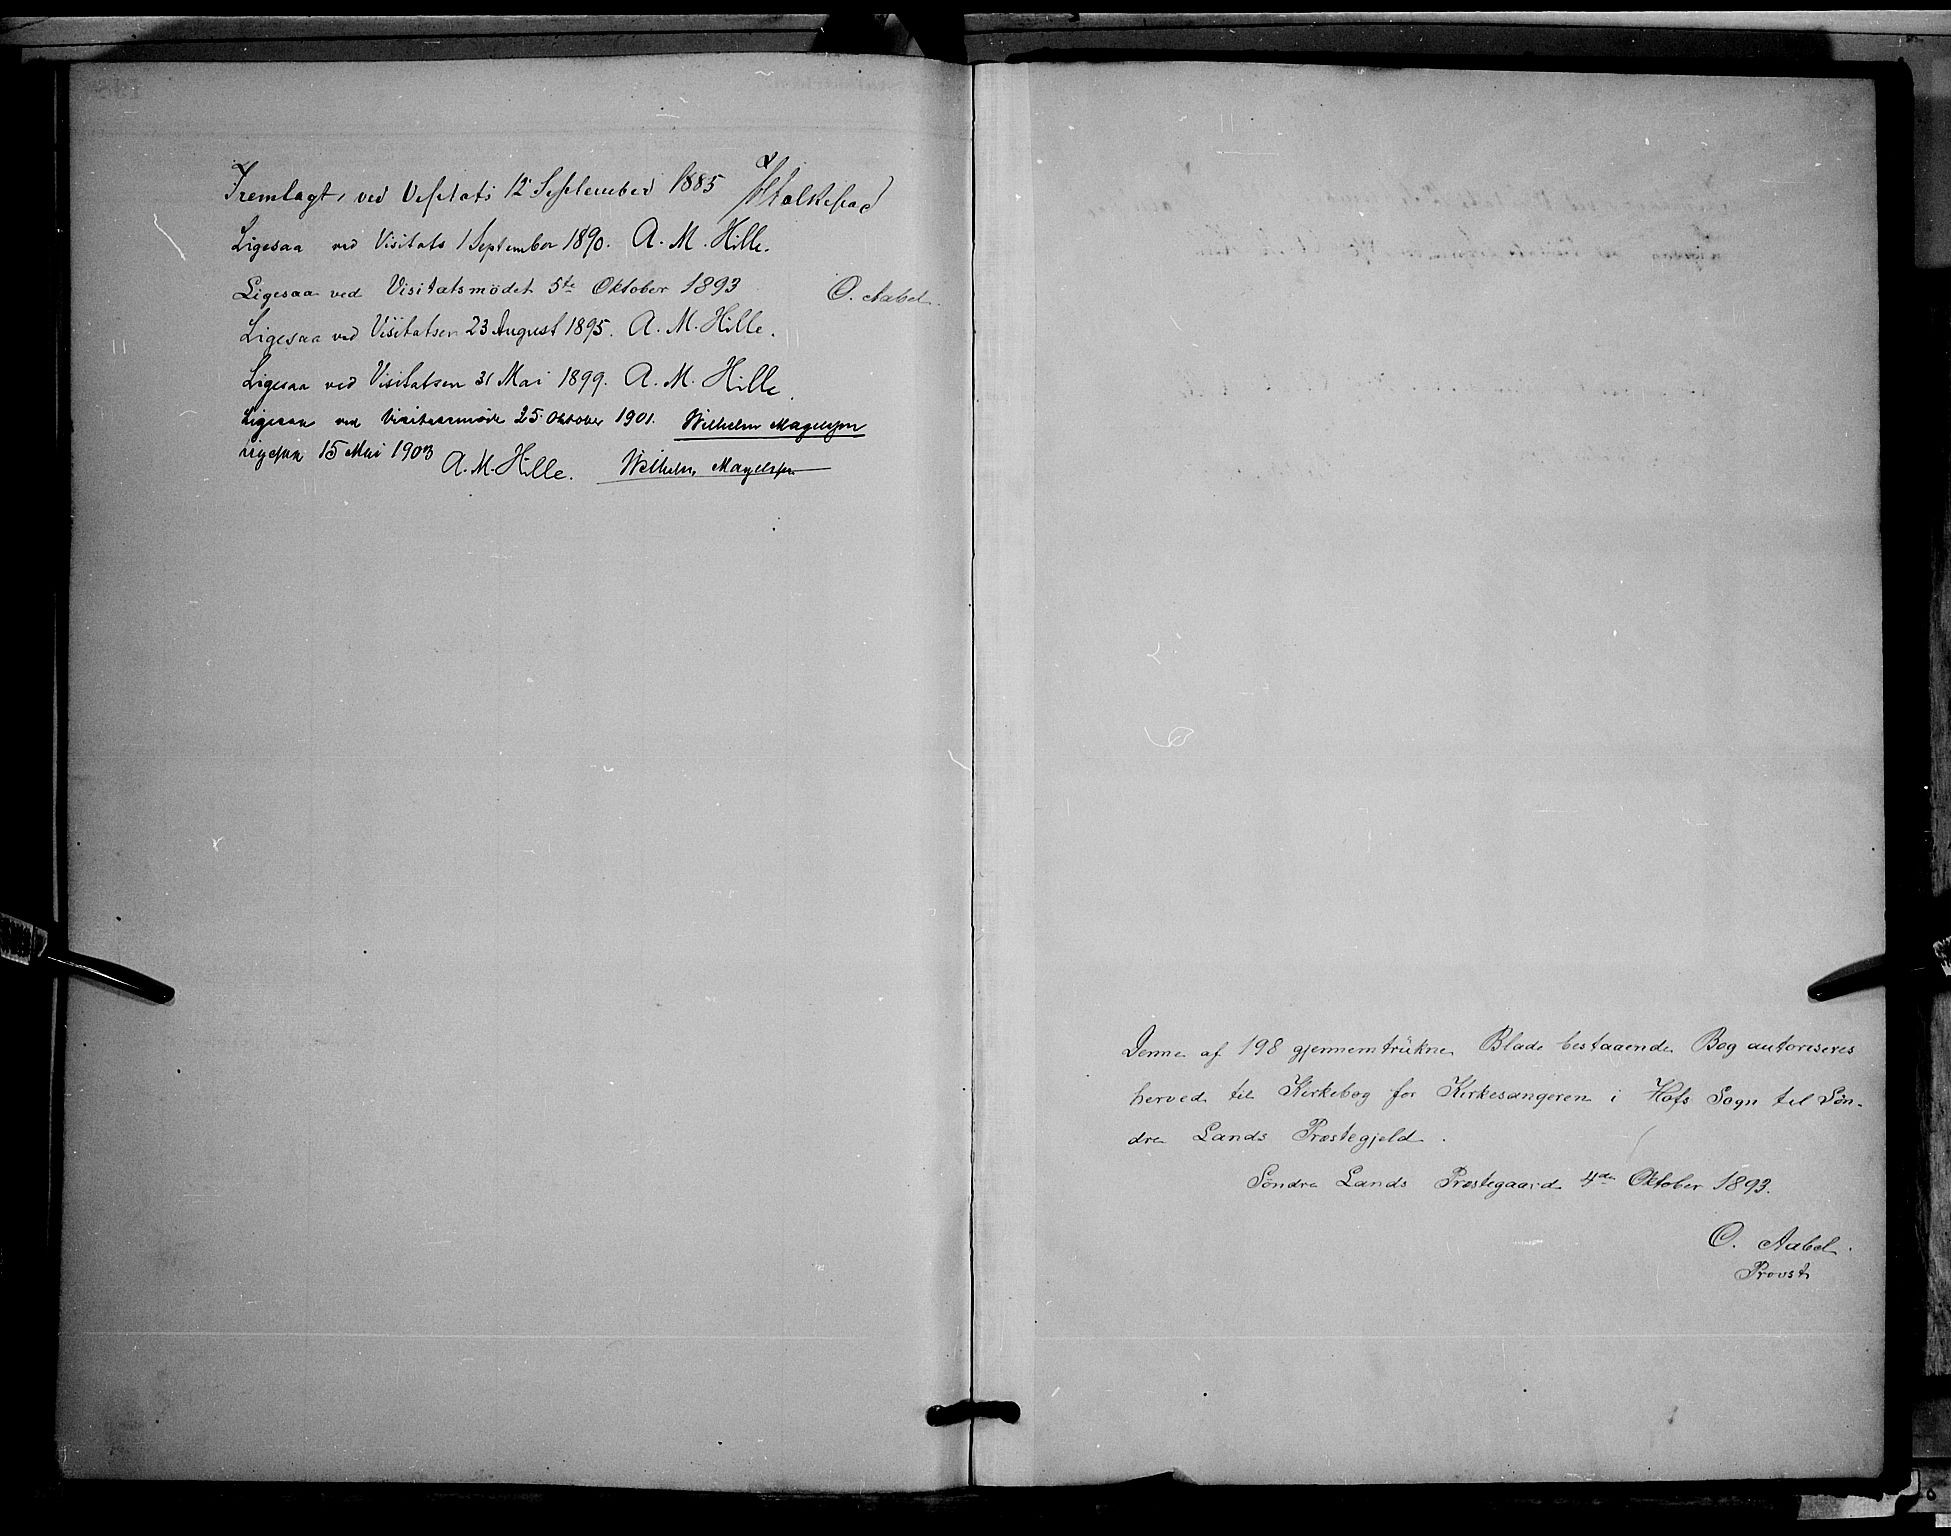 Fremlagt ved Visitats 12 September 1885
Ligesaa ved Visitats 1 September 1890. A. M. Hille.
Ligesaa ved Visitatsmödet 5te Oktober 1893 O. Aabel.
Ligesaa ved Visitatsen 23 August 1895. A. M. Hille.
Ligesaa ved Visitatsen 31 Mai 1899. A. M. Hille.
Ligesaa ved Visitatsmöde 25 Oktober 1901. Wilhelm Magelssen
Ligesaa 15 Mai 1903 A. M. Hille. Wilhelm Magelssen
Denne af 198 gjennemtrükne Blade bestaaende Bog autoriseres
herved til Kirkebog for Kirkesangeren i Hofs Sogn til Søn-
dre Lands Præstegjeld.
Søndre Lands Præstegaard 4de Oktober 1893.
O. Aabel.
Provst